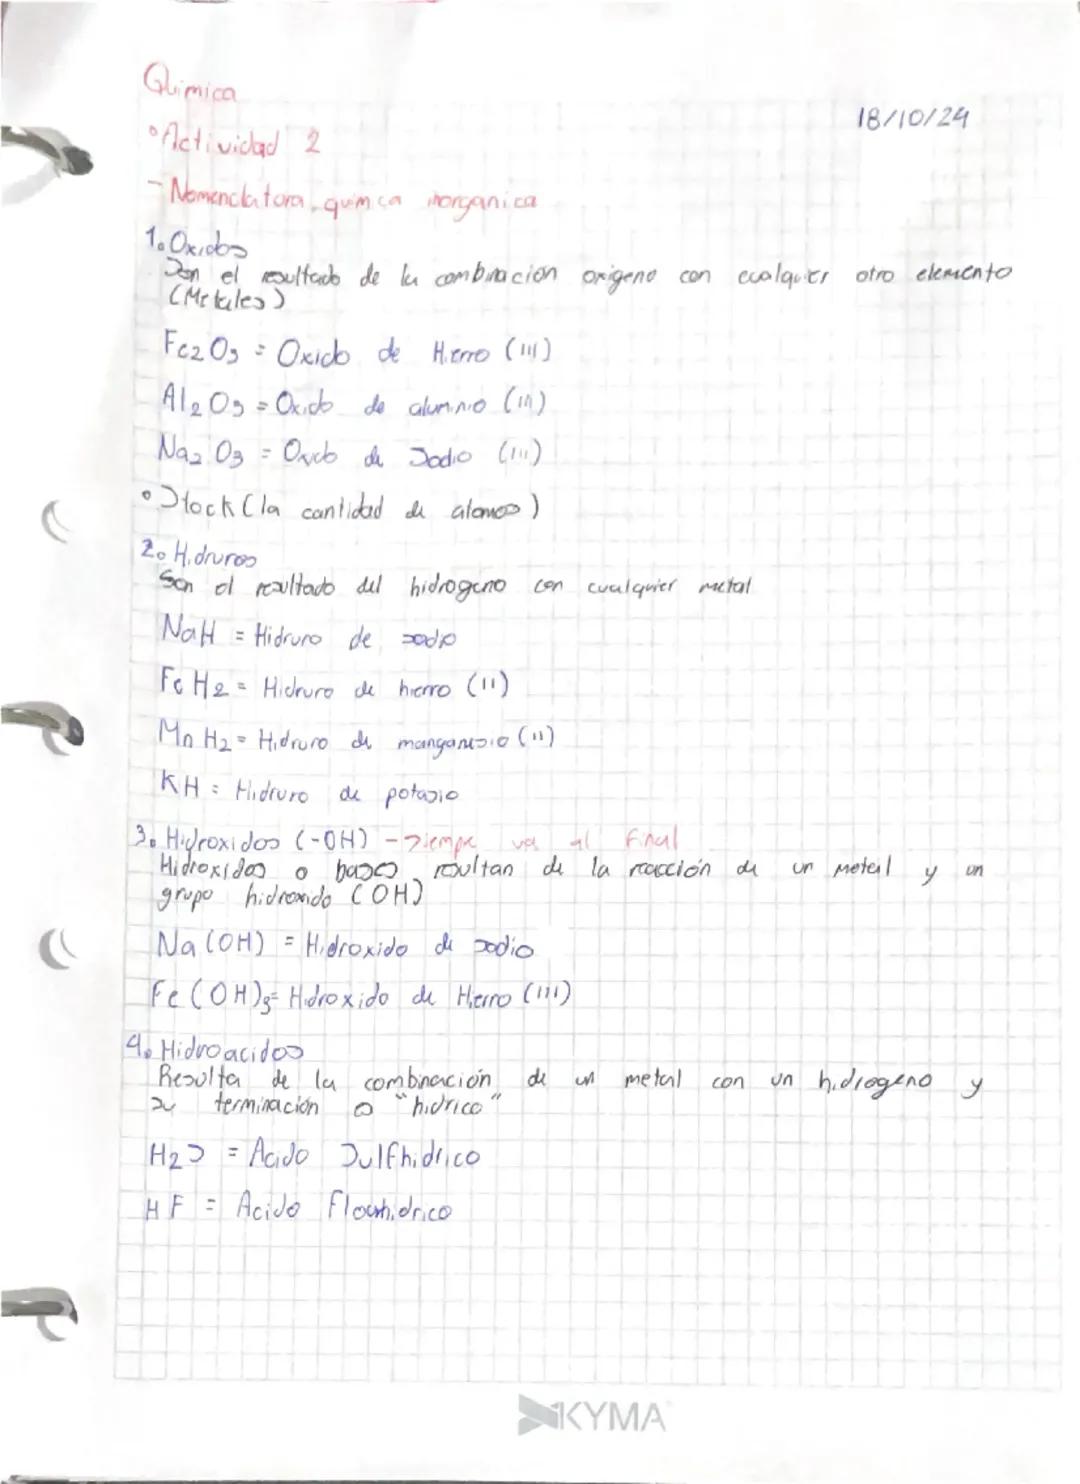 Quimica
18/10/24
°Actividad 2
- Nomenclatora quimica inorganica
1. Oxidos
Son el resultado de la combinacion oxigeno con cualquier otro elemento
(Metales)
Fe2O3 = Oxido de Hierro (III)
Al2O3 = Oxido de aluminio (III)
Na2O3 = Oxido de Sodio (III)
° Stock (la cantidad de atomos)
2. Hidruros
Son el resultado del hidrogeno con cualquier metal
NaH = Hidruro de sodio
FeH2 = Hidruro de hierro (II)
MnH2 = Hidruro de manganesio (II)
KH = Hidruro de potasio
3. Hidroxidos (-OH) - Siempre va al final
Hidroxidos o bases resultan de la reacción de un metal y un
grupo hidroxido (OH)
Na(OH) = Hidroxido de sodio
Fe(OH)3 = Hidroxido de Hierro (III)
4. Hidroacidos
Resulta de la combinación de un metal con un hidrogeno y
su terminación o "hidrico"
H2S = Acido Sulfhidrico
HF = Acido Flourhidrico
KYMA